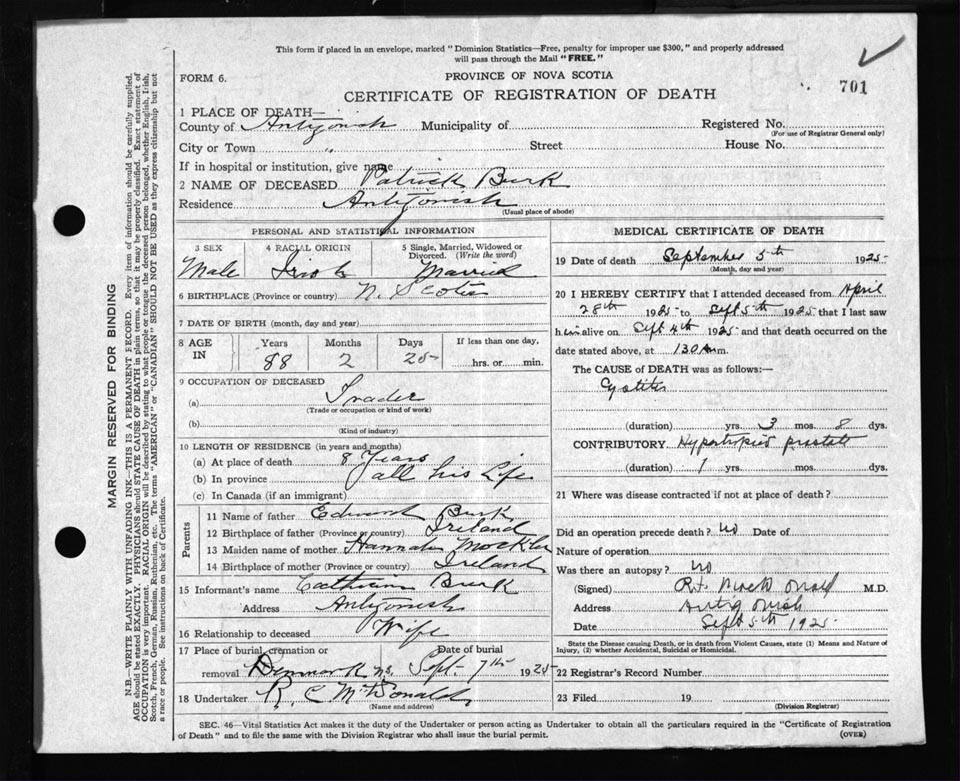 This form if placed in an envelope, marked "Dominion Statistics—Free, penalty for improper use $300," and properly addressed
will pass through the Mail "FREE."
FORM 6.
PROVINCE OF NOVA SCOTIA
701
CERTIFICATE OF REGISTRATION OF DEATH
1 PLACE OF DEATH—
County of Antigonish Municipality of Registered No.
(For use of Registrar General only)
City or Town " Street House No.
If in hospital or institution, give name
2 NAME OF DECEASED Patrick Burk
Residence Antigonish
(Usual place of abode)
PERSONAL AND STATISTICAL INFORMATION
3 SEX 4 RACIAL ORIGIN 5 Single, Married, Widowed or
Divorced. (Write the word)
Male Irish Married
6 BIRTHPLACE (Province or country) N. Scotia
7 DATE OF BIRTH (month, day and year)
8 AGE IN Years Months Days If less than one day,
88 2 25 hrs. or min.
9 OCCUPATION OF DECEASED
(a) Trader
(Trade or occupation or kind of work)
(b)
(Kind of industry)
10 LENGTH OF RESIDENCE (in years and months)
(a) At place of death 8 Years
(b) In province all his Life
(c) In Canada (if an immigrant)
Parents
11 Name of father Edward Burk
12 Birthplace of father (Province or country) Ireland
13 Maiden name of mother Hannah Mockler
14 Birthplace of mother (Province or country) Ireland
15 Informant's name Burk
Address Antigonish
16 Relationship to deceased Wife
17 Place of burial, cremation or Date of burial
removal N.S. Sept. 7th 1925
18 Undertaker R C McDonald
(Name and address)
MEDICAL CERTIFICATE OF DEATH
19 Date of death September 5th 1925
(Month, day and year)
20 I HEREBY CERTIFY that I attended deceased from April
28th 1925 to Sept 5th 1925 that I last saw
him alive on Sept 4th 1925 and that death occurred on
date stated above, at 130 A m.
The CAUSE of DEATH was as follows:—
Cystitis
(duration) yrs. 3 mos. 8 dys.
CONTRIBUTORY prostate
(duration) 1 yrs. mos. dys.
21 Where was disease contracted if not at place of death?
Did an operation precede death? no Date of
Nature of operation
Was there an autopsy? no
(Signed) M.D.
Address Antigonish
Date Sept 5th 1925
State the Disease causing Death, or in death from Violent Causes, state (1) Means and Nature of
Injury, (2) whether Accidental, Suicidal or Homicidal.
22 Registrar's Record Number
23 Filed 19
(Division Registrar)
SEC. 46—Vital Statistics Act makes it the duty of the Undertaker or person acting as Undertaker to obtain all the particulars required in the "Certificate of Registration
of Death" and to file the same with the Division Registrar who shall issue the burial permit. (OVER)
MARGIN RESERVED FOR BINDING
N.B.—WRITE PLAINLY WITH UNFADING INK—THIS IS A PERMANENT RECORD. Every item of information should be carefully supplied.
AGE should be stated EXACTLY. PHYSICIANS should STATE CAUSE OF DEATH in plain terms, so that it may be properly classified. Exact statement of
OCCUPATION is very important. RACIAL ORIGIN will be described by stating to what people or tongue the deceased person belonged, whether English, Irish,
Scotch, French, German, Russian, Ruthenian, etc. The terms "AMERICAN" or "CANADIAN" SHOULD NOT BE USED as they express citizenship but not
a race or people. See instructions on back of Certificate.